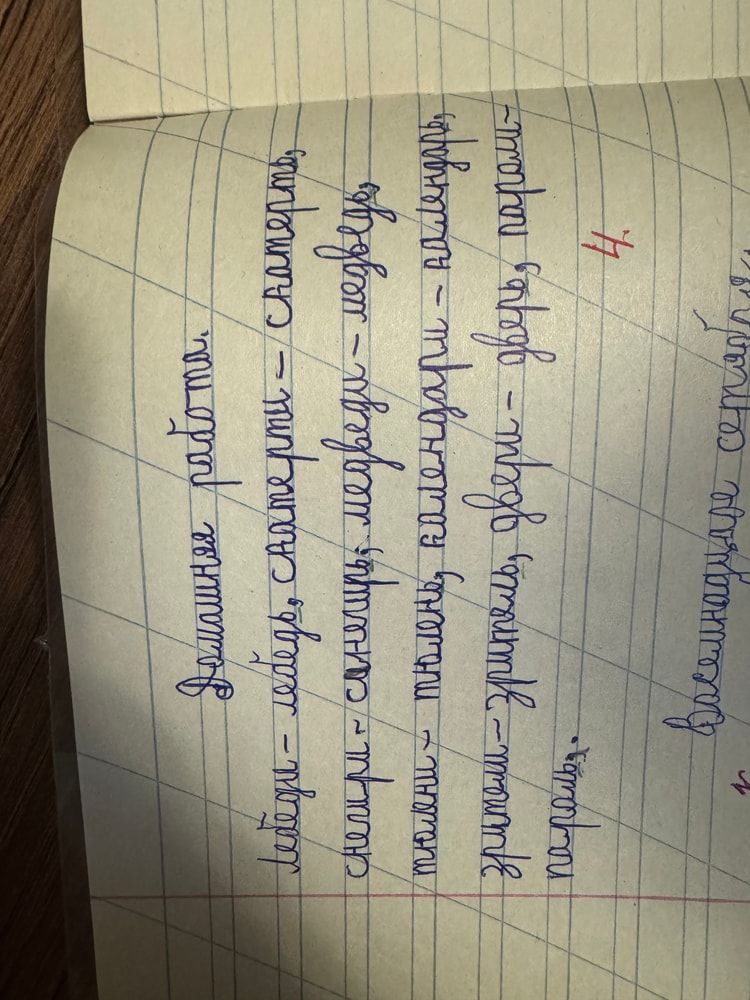 Домашняя работа.
лебеди – лебедь, скатерти – скатерть,
снегири – снегирь, медведи – медведь,
тюлени – тюлень, календари – календарь,
зрители – зритель, двери – дверь, пароли –
пароль.
4
Восемнадцатое сентября